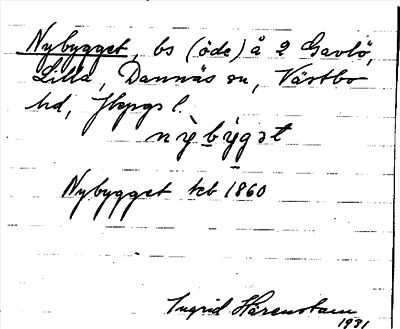 Nybygget, bs (öde) å 2 Gavlö,
Lilla, Dannäs sn, Västbo
hd, Jkpgs l.
nỳbỳgət
Nybygget kb 1860
Ingrid Hårenstam
1931